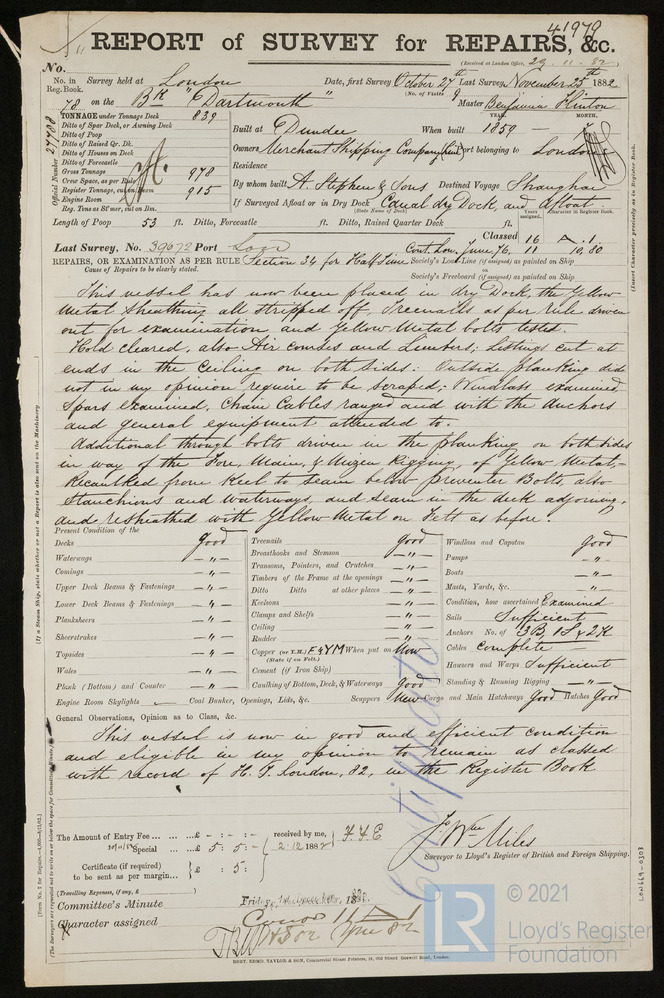 41978
"REPORT of SURVEY for REPAIRS, &c.
(Received at London Office, 29.11.82)
No.
No. in Reg. Book. Survey held at London Date, first Survey October 27th Last Survey, November 25th 1882
(No. of Visits 9
78 on the Bk "Dartmouth" Master Benjamin Hinton
TONNAGE under Tonnage Deck 839
YEAR. MONTH.
Ditto of Spar Deck, or Awning Deck
Built at Dundee When built 1859 —
Ditto of Poop
Ditto of Raised Qr. Dk.
Ditto of Houses on Deck
Owners Merchant Shipping Company Port belonging to London
Ditto of Forecastle
Residence
Gross Tonnage 978
Official Number 27488
Crew Space, as per Rule
By whom built A. Stephen & Sons Destined Voyage Shanghai
Register Tonnage, cut on Beam 915
Engine Room
If Surveyed Afloat or in Dry Dock Canal dry Dock, and afloat
(State Name of Dock)
Reg. Tons as St'mer, cut on Bm.
Years assigned. Character in Register Book.
Length of Poop 53 ft. Ditto, Forecastle ft. Ditto, Raised Quarter Deck ft.
Classed 16 A.1
Last Survey, No. 39672 Port Lon Cont. Lon. June 76. 11 10,80
REPAIRS, OR EXAMINATION AS PER RULE Section 34 for Half Time Society's Load Line (if assigned) as painted on Ship
Cause of Repairs to be clearly stated.
or
Society's Freeboard (if assigned) as painted on Ship
This vessel has now been placed in dry Dock, the Yellow
Metal Sheathing all stripped off, Treenails as per rule driven
out for examination and Yellow Metal bolts tested.
Hold cleared, also Air courses and Limbers; Listings cut at
ends in the Ceiling on both sides: Outside planking did
not in my opinion require to be scraped; Windlass examined
Spars examined, Chain Cables ranged and with the Anchors
and general equipment attended to.
Additional through bolts driven in the planking on both sides
in way of the Fore, Main, & Mizen Rigging, of Yellow Metal,—
Recaulked from Keel to seam below Preventer Bolts, also
Stanchions and waterways, and seam in the deck adjoining,
and resheathed with Yellow Metal on Felt as before.
Present Condition of the
Decks Good
Waterways — " —
Comings — " —
Upper Deck Beams & Fastenings — " —
Lower Deck Beams & Fastenings — " —
Planksheers — " —
Sheerstrakes — " —
Topsides — " —
Wales — " —
Plank (Bottom) and Counter — " —
Treenails Good
Breasthooks and Stemson — " —
Transoms, Pointers, and Crutches — " —
Timbers of the Frame at the openings — " —
Ditto Ditto at other places — " —
Keelsons — " —
Clamps and Shelfs — " —
Ceiling — " —
Rudder — " —
Copper (or Y.M.) F & YM When put on Now
(State if on Felt.)
Cement (if Iron Ship)
Caulking of Bottom, Deck, & Waterways Good
Windlass and Capstan Good
Pumps — " —
Boats — " —
Masts, Yards, &c. — " —
Condition, how ascertained Examined
Sails Sufficient
Anchors No. of 3B, 1S & 2K
Cables Complete
Hawsers and Warps Sufficient
Standing & Running Rigging — " —
Engine Room Skylights — Coal Bunker, Openings, Lids, &c. Scuppers New Cargo and Main Hatchways Good Hatches Good
General Observations, Opinion as to Class, &c.
This vessel is now in good and efficient condition
and eligible in my opinion to remain as classed
with record of H.T. London, 82, in the Register Book
Certificate
The Amount of Entry Fee ... ... ...£ - : - : - received by me, F.F.E
Special ... ...£ 5 : 5 : - 2.12.1882
Certificate (if required) £ : 5 :
to be sent as per margin...
J. Wm Miles
Surveyor to Lloyd's Register of British and Foreign Shipping.
(Travelling Expenses, if any, £
Committee's Minute
Character assigned
LON669-0303
BORT, EDMD. TAYLOR, & SON, Commercial Steam Printers, 18, Old Street Goswell Road, London.
(If a Steam Ship, state whether or not a Report is also sent on the Machinery
[Form No. 2 for Repairs.
(The Surveyors are requested not to write on or below the space for Committee's Minute.)
(Insert Character precisely as in Register Book.
LR
© 2021
Lloyd's Register
Foundation